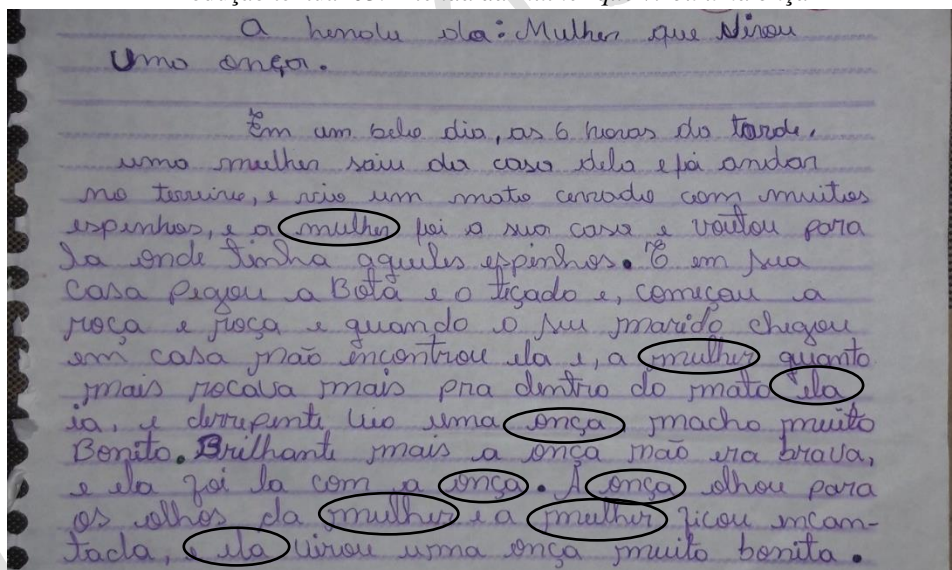 A henolu da: Mulher que Virou
Uma onça.
Em um belo dia, as 6 horas da tarde,
uma mulher saiu da casa dela e foi andar
no terrino, e viu um mato cerrado com muitos
espinhos, e a mulher foi a sua casa e voutou para
la onde tinha aqueles espinhos. E em sua
casa pegou a Bota e o tiçado e, começou a
roça e roça e quando o seu marido chegou
em casa não encontrou ela e, a mulher quanto
mais rocava mais pra dentro do mato ela
ia, e derrepente viu uma onça macho muito
Bonito. Brilhante mais a onça não era brava,
e ela foi la com a onça. A onça olhou para
os olhos da mulher e a mulher ficou incan-
tada, e ela virou uma onça muito bonita.